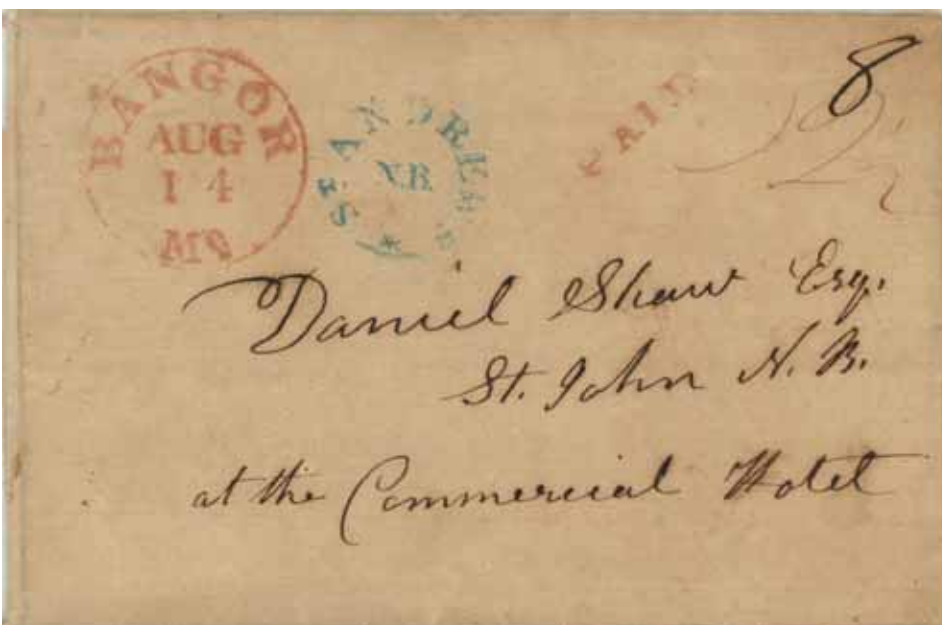 BANGOR
AUG
14
Me
ST ANDREWS
NB
PAID
8
Daniel Shaw Esq.
St. John N. B.
at the Commercial Hotel